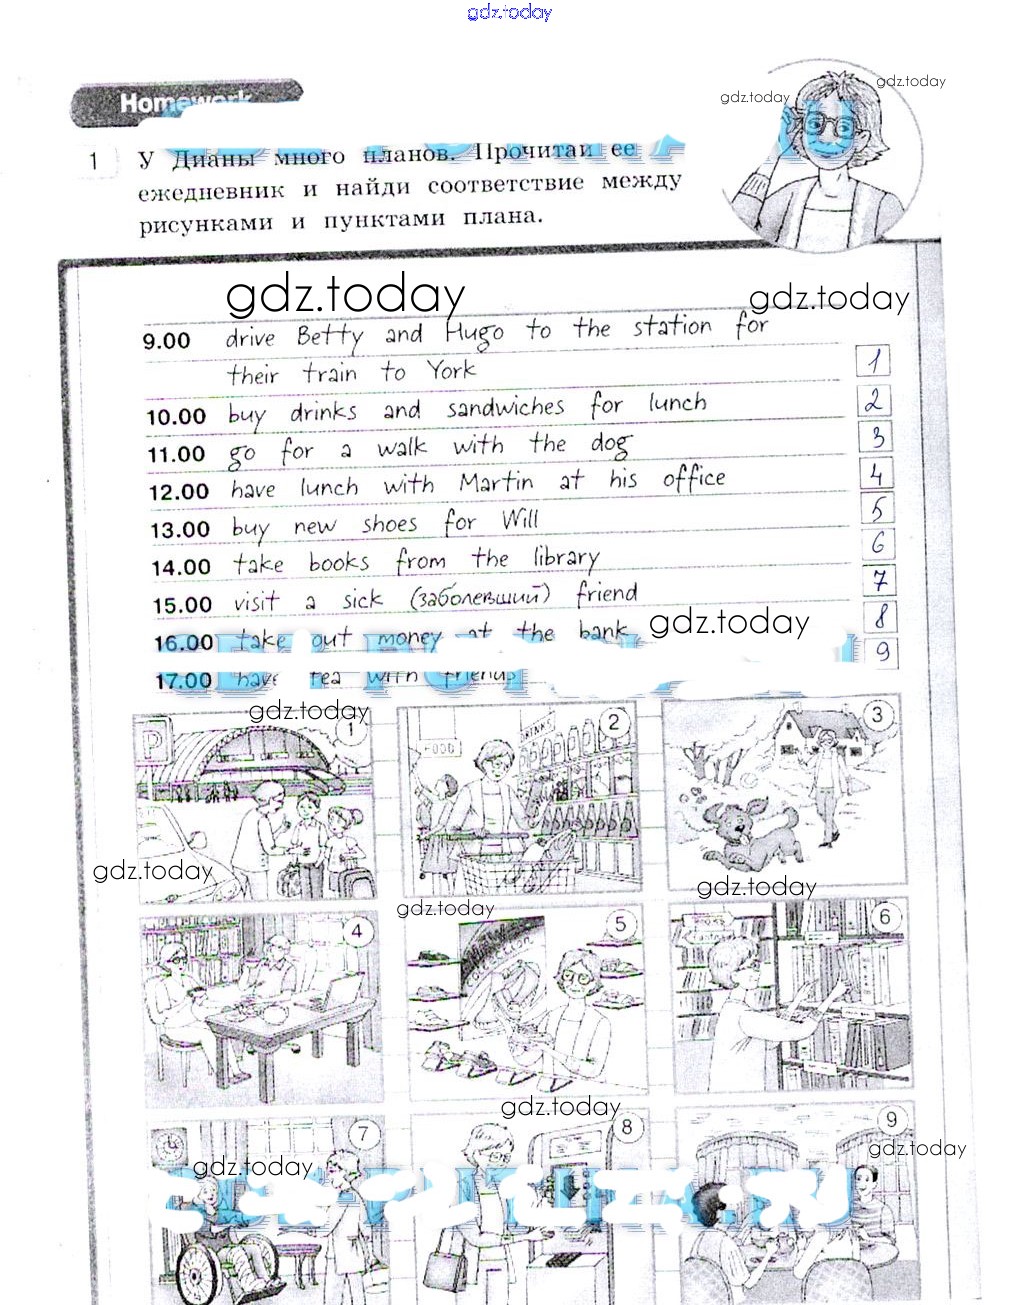 gdz.today
gdz.today
gdz.today
Homework
1 У Дианы много планов. Прочитай ее
ежедневник и найди соответствие между
рисунками и пунктами плана.
gdz.today
gdz.today
9.00 drive Betty and Hugo to the station for
their train to York 1
10.00 buy drinks and sandwiches for lunch 2
11.00 go for a walk with the dog 3
12.00 have lunch with Martin at his office 4
13.00 buy new shoes for Will 5
14.00 take books from the library 6
15.00 visit a sick (заболевший) friend 7
16.00 take out money at the bank 8
gdz.today
17.00 have tea with friends 9
gdz.today
P 1
FOOD DRINKS 2
3
gdz.today
gdz.today
gdz.today
4
5
6
gdz.today
7
8
9
gdz.today
gdz.today